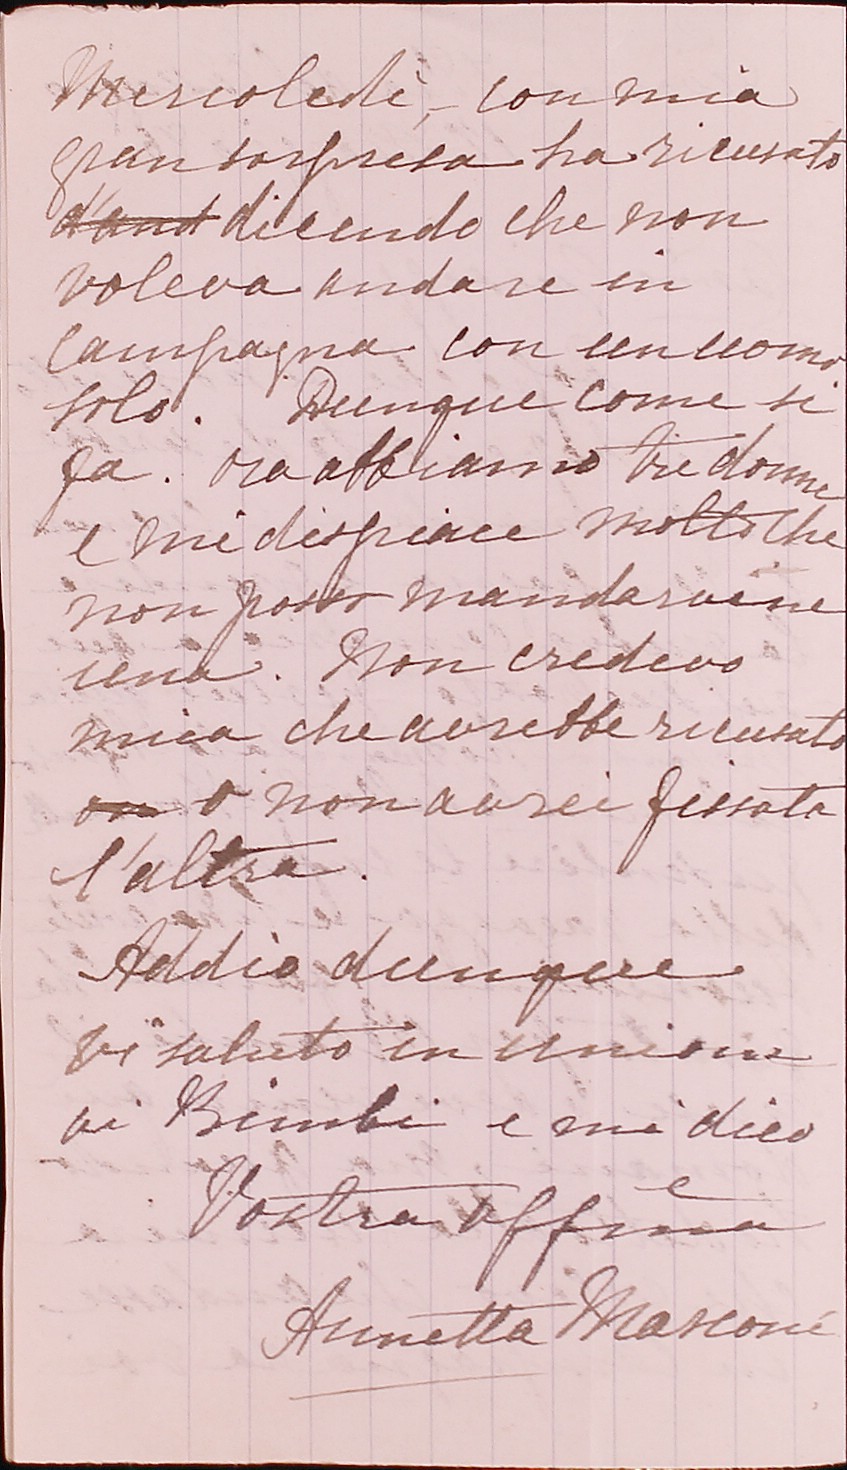 Mercoledì, - con mia
gran sorpresa ha ricusato
d'and dicendo che non
voleva andare in
campagna con un uomo
solo. Dunque come si
fa. ora abbiamo tre donne
e mi dispiace molto che
non posso mandarvene
una. Non credevo
mica che avrebbe ricusato
on o non avrei fissata
l'altra.
Addio dunque
vi saluto in unione
ai Bimbi e mi dico
Vostra affma
Annetta Marconi